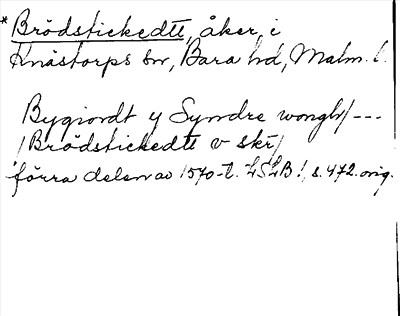 *Brödstickedtt, åker, i
Knästorps sn, Bara hd, Malm. l.
Bygiordt y Syndre wongh/ ---
/Brödstickedtt v skr/
förra delen av 1570-t. LSLB1, s. 472. orig.